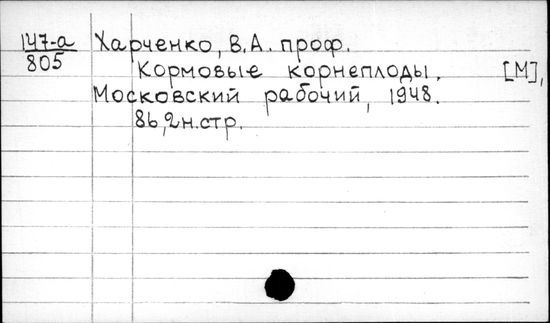 147-а Харченко, В.А. проф.
805 Кормовые корнеплоды. [М],
Московский рабочий, 1948.
86,2н.стр.